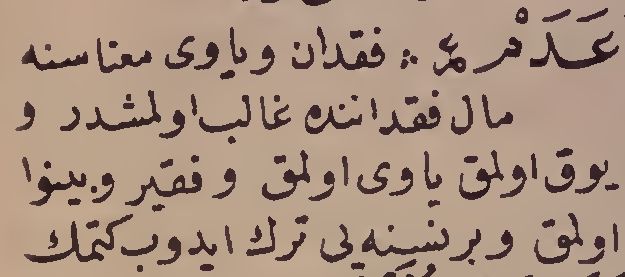 عَدَمْ ع م فقدان و یاوی معناسنه
مال فقداننده غالب اولمشدر و
یوق اولمق یاوی اولمق و فقیر و بینوا
اولمق و بر نسنه یی ترك ایدوب كتمك